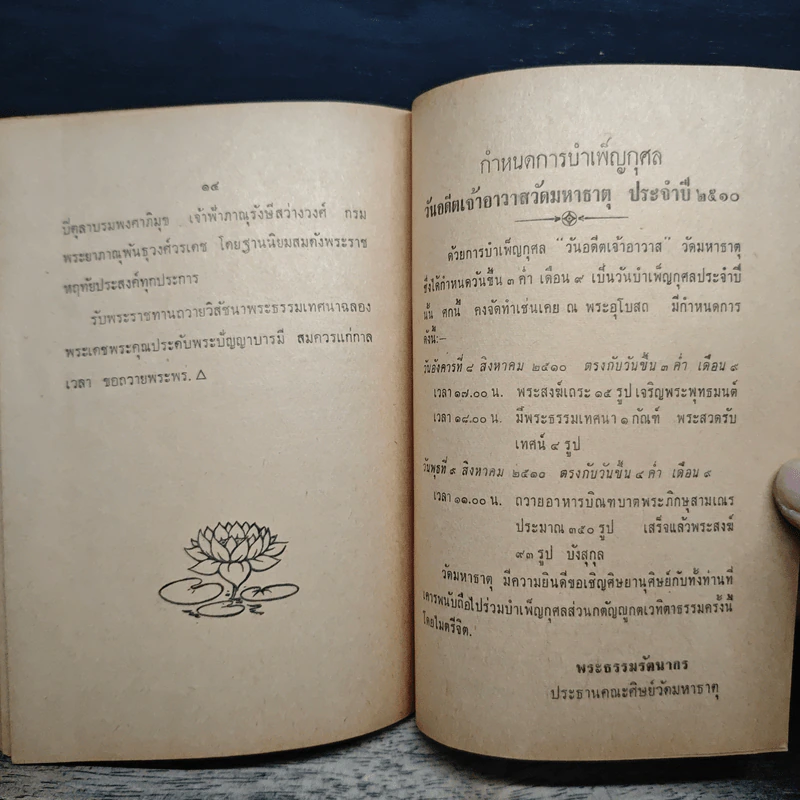 ๑๙
ปิตุลาบรมพงศาภิมุข เจ้าฟ้าภาณุรังษีสว่างวงศ์ กรม
พระยาภาณุพันธุวงศ์วรเดช โดยฐานนิยมสมดังพระราช
หฤทัยประสงค์ทุกประการ
รับพระราชทานถวายวิสัชนาพระธรรมเทศนาฉลอง
พระเดชพระคุณประดับพระปัญญาบารมี สมควรแก่กาล
เวลา ขอถวายพระพร.
กำหนดการบำเพ็ญกุศล
วันอดีตเจ้าอาวาสวัดมหาธาตุ ประจำปี ๒๕๑๐
ด้วยการบำเพ็ญกุศล "วันอดีตเจ้าอาวาส" วัดมหาธาตุ
ซึ่งได้กำหนดวันขึ้น ๓ ค่ำ เดือน ๙ เป็นวันบำเพ็ญกุศลประจำปี
นั้น ศกนี้ คงจัดทำเช่นเคย ณ พระอุโบสถ มีกำหนดการ
ดังนี้:-
วันอังคารที่ ๘ สิงหาคม ๒๕๑๐ ตรงกับวันขึ้น ๓ ค่ำ เดือน ๙
เวลา ๑๗.๐๐ น. พระสงฆ์เถระ ๑๕ รูป เจริญพระพุทธมนต์
เวลา ๑๘.๐๐ น. มีพระธรรมเทศนา ๑ กัณฑ์ พระสวดรับ
เทศน์ ๔ รูป
วันพุธที่ ๙ สิงหาคม ๒๕๑๐ ตรงกับวันขึ้น ๔ ค่ำ เดือน ๙
เวลา ๑๑.๐๐ น. ถวายอาหารบิณฑบาตพระภิกษุสามเณร
ประมาณ ๓๕๐ รูป เสร็จแล้วพระสงฆ์
๙๓ รูป บังสุกุล
วัดมหาธาตุ มีความยินดีขอเชิญศิษยานุศิษย์กับทั้งท่านที่
เคารพนับถือไปร่วมบำเพ็ญกุศลส่วนกตัญญูกตเวทิตาธรรมครั้งนี้
โดยไมตรีจิต.
พระธรรมรัตนากร
ประธานคณะศิษย์วัดมหาธาตุ